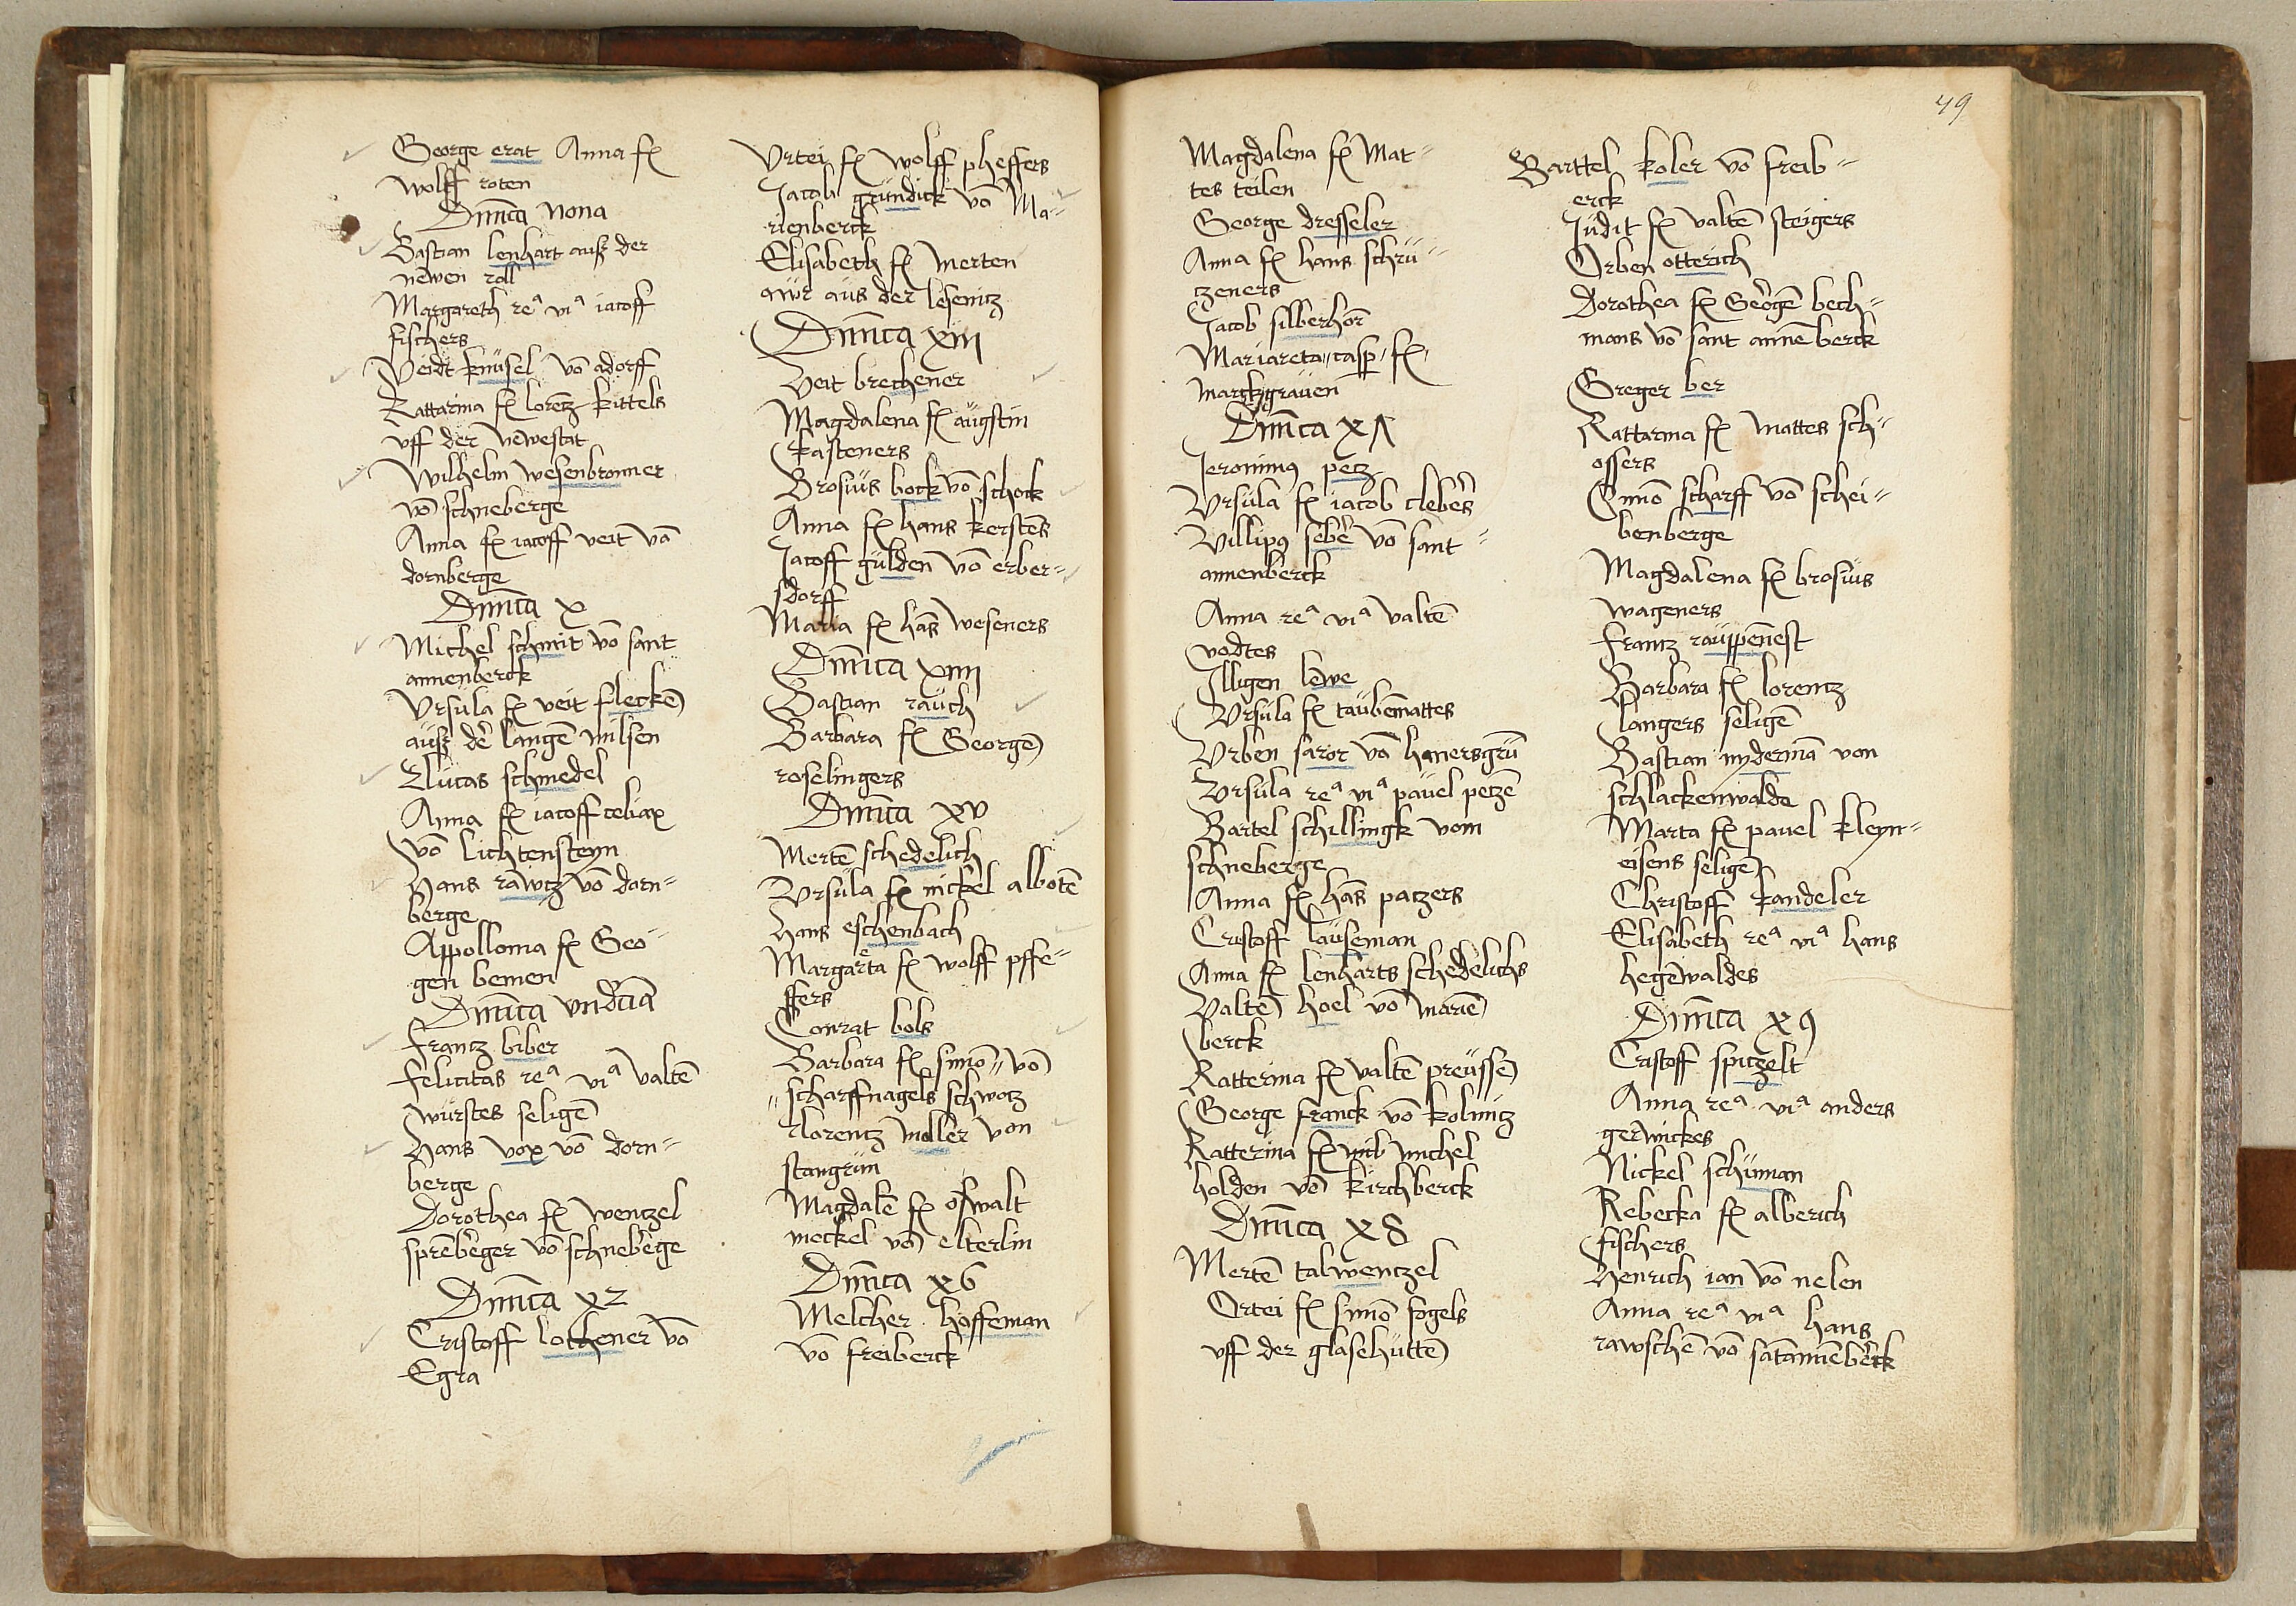 George erat Anna f
Wolff roten
Dmica Nona
Bastian lenhart auß der
newen rall
Margareth reᵃ viᵃ iacoff
fischers
Veidt knüsel võ adorff
Kattarina f lorentz kittels
vff der Newestat
Wilhelm wesenbronner
võ schneberge
Anna f iacoff veit võ
dornberge
Dmica x
Michel schmit võ sant
annenberck
Vrsula f veit fleckẽ
auß dẽ langẽ milsen
Lucas schmedel
Anna f iacoff tobiax
võ lichtensteyn
Hans rawtz võ dorn=
berge
Appollonia f Geo=
gen bemen
Dmica vndecia
Frantz biber
Felicitas reᵃ viᵃ valtẽ
würstes seligẽ
Hans vox võ dorn=
berge
Dorothea f wentzel
sprenberger võ schneberge
Dmica x2
Cristoff lochener võ
Egra
Vrtei f wolff pheffers
Jacob gründick võ Ma=
rienberck
Elisabeth f Merten
aus der lesenitz
Dmica xiii
Veit brechener
Magdalena f augstin
kasteners
Brosius bock võ schock
Anna f hans kerstẽs
Jacoff gülden võ erber=
sdorff
Maria f hãs weseners
Dmica xiiii
Bastian rauch
Barbara f Georgẽ
roselingers
Dmica xv
Mertẽ schedelich
Vrsula f nickel albotẽ
Hans eschenbach
Margareta f wolff pffe=
ffers
Conrat bols
Barbara f simõ võ
scharffnagels schwotz
Lorentz moller von
stangrün
Magdalẽ f oswalt
meckel võ elterlin
Dmica x6
Melcher hoffeman
võ freiberck
49
Magdalena f Mat=
tes teilen
George dresseler
Anna f hans schrü=
tzeners
Jacob silberhorn
Mariareta casp f
Marckgrauen
Dmica xΛ
Jeronimus petz
Vrsula f iacob clebers
Villipus seber võ sant=
annenberck
Anna reᵃ viᵃ valtẽ
vodtes
Illigen lewe
Vrsula f taubẽmattes
Vrben saror võ hanersgrũ
Vrsula reᵃ viᵃ pauel petzẽ
Bartel schillingk vom
schneberge
Anna f hãs patzers
Cristoff lauseman
Anna f lenharts schedelichs
Valtẽ hoel võ mariẽ
berck
Katterina f valtẽ preussẽ
George franck võ kolmitz
Katterina f michel
holden võ kirchberck
Dmica x8
Mertẽ talwentzel
Ortei f simõ fogels
vff der glasehuttẽ
Barttel koler võ freib=
erck
Judit f valtẽ steigers
Orben otterich
Dorothea f Georgẽ bech=
mans võ sant annẽberck
Greger ber
Kattarina f mattes sch=
ossers
Simõ scharff võ schei=
benberge
Magdalena f brosius
wageners
Frantz rauppenest
Barbara f lorentz
langers seligẽ
Bastian nydermã von
schlackenwalde
Marta f pauel kleyn=
eisens seligẽ
Christoff kandeler
Elisabeth reᵃ viᵃ hans
hegẽwaldes
Dmica x9
Cristoff spitzelt
Anna reᵃ viᵃ anders
gerwickes
Nickel schuman
Rebecka f alberich
fischers
Henrich ian võ nelen
Anna reᵃ viᵃ hans
rawschẽ võ sãtannẽberck